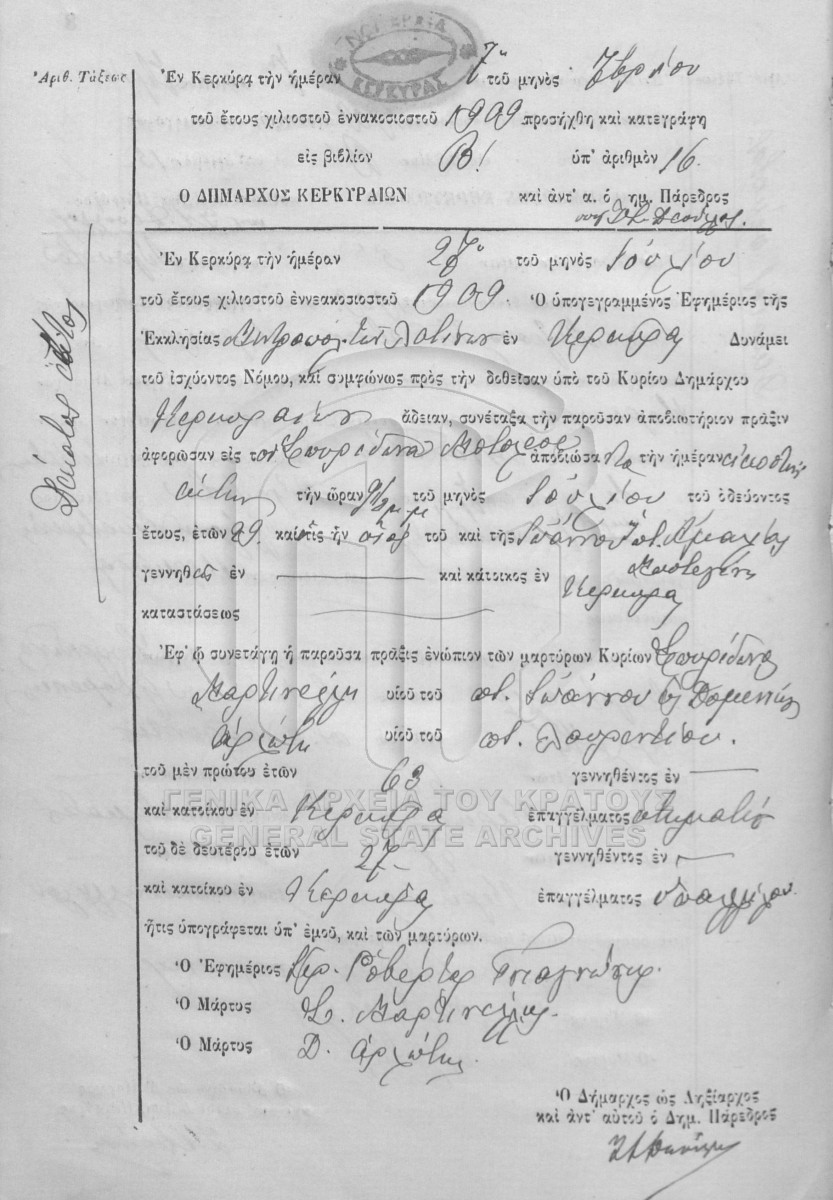 ΝΟΜΑΡΧΙΑ
ΚΕΡΚΥΡΑΣ
Ἀριθ. Τάξεως
Ἐν Κερκύρᾳ τὴν ἡμέραν τοῦ μηνὸς
τοῦ ἔτους χιλιοστοῦ ἐννακοσιοστοῦ 1909 προσήχθη καὶ κατεγράφη
εἰς βιβλίον Β! ὑπ' ἀριθμὸν 16.
Ο ΔΗΜΑΡΧΟΣ ΚΕΡΚΥΡΑΙΩΝ καὶ ἀντ' α. ὁ ημ. Πάρεδρος
Δέκατος ἕκτος
Ἐν Κερκύρᾳ τὴν ἡμέραν 27 τοῦ μηνὸς Ἰουλίου
τοῦ ἔτους χιλιοστοῦ ἐννεακοσιοστοῦ 1909. Ὁ ὑπογεγραμμένος Ἐφημέριος τῆς
Ἐκκλησίας Μητροπόλ. τῶν Λατίνων ἐν Κερκύρᾳ Δυνάμει
τοῦ ἰσχύοντος Νόμου, καὶ συμφώνως πρὸς τὴν δοθεῖσαν ὑπὸ τοῦ Κυρίου Δημάρχου
Κερκυραίων ἄδειαν, συνέταξα τὴν παροῦσαν ἀποβιωτήριον πρᾶξιν
ἀφορῶσαν εἰς τὸν Σπυρίδωνα ἀποβιώσαντα τὴν ἡμέραν εἰκοστὴν
ἕκτην τὴν ὥραν τοῦ μηνὸς Ἰουλίου τοῦ ὁδεύοντος
ἔτους, ἐτῶν 29. καὶ ὅστις ἦν υἱὸς τοῦ καὶ τῆς Ἰωάννου
γεννηθεὶς ἐν — καὶ κάτοικος ἐν Κερκύρᾳ
καταστάσεως —
Ἐφ' ᾧ συνετάγη ἡ παροῦσα πρᾶξις ἐνώπιον τῶν μαρτύρων Κυρίων Σπυρίδωνα
Μαρτινέλλη υἱοῦ τοῦ ποτ. Ἰωάννου καὶ Δομενίκου
Ἀρλώτη υἱοῦ τοῦ ποτ. Λαυρεντίου.
τοῦ μὲν πρώτου ἐτῶν 63 γεννηθέντος ἐν —
ΓΕΝΙΚΑ ΑΡΧΕΙΑ ΤΟΥ ΚΡΑΤΟΥΣ
καὶ κατοίκου ἐν Κερκύρᾳ ἐπαγγέλματος κτηματίου
GENERAL STATE ARCHIVES
τοῦ δὲ δευτέρου ἐτῶν 27 γεννηθέντος ἐν —
καὶ κατοίκου ἐν Κερκύρᾳ ἐπαγγέλματος ὑπαλλήλου
ἥτις ὑπογράφεται ὑπ' ἐμοῦ, καὶ τῶν μαρτύρων.
Ὁ Ἐφημέριος
Ὁ Μάρτυς Σ. Μαρτινέλλης
Ὁ Μάρτυς Δ. Ἀρλώτης
Ὁ Δήμαρχος ὡς Ληξίαρχος
καὶ ἀντ' αὐτοῦ ὁ Δημ. Πάρεδρος